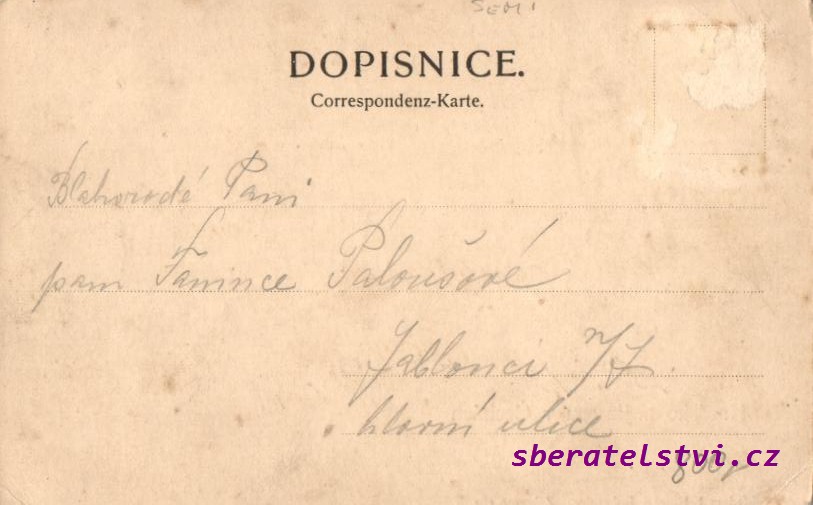 SEMI
DOPISNICE.
Correspondenz-Karte.
Blahorodé Paní
paní Fanince Paloušové
Jablonci n/J.
hlavní ulice
sberatelstvi.cz